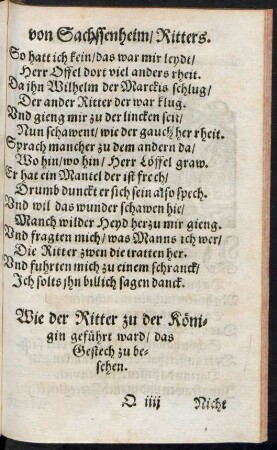 von Sachssenheim/ Ritters.
So hatt ich kein/ das war mir leydt/
Herr Offel dort viel anders rheit.
Da jhn Wilhelm der Marckis schlug/
Der ander Ritter der war klug.
Vnd gieng mir zu der lincken seit/
Nun schawent/ wie der gauch her rheit.
Sprach mancher zu dem andern da/
Wo hin/ wo hin/ Herr Löffel graw.
Er hat ein Mantel der ist frech/
Drumb dunckt er sich sein also spech.
Vnd wil das wunder schawen hie/
Manch wilder Heyd her zu mir gieng.
Vnd fragten mich/ was Manns ich wer/
Die Ritter zwen die tratten her.
Vnd fuhrten mich zu einem schranck/
Ich solts jhn billich sagen danck.
Wie der Ritter zu der Köni-
gin geführt ward/ das
Gestech zu be-
sehen.
O iiij Nicht